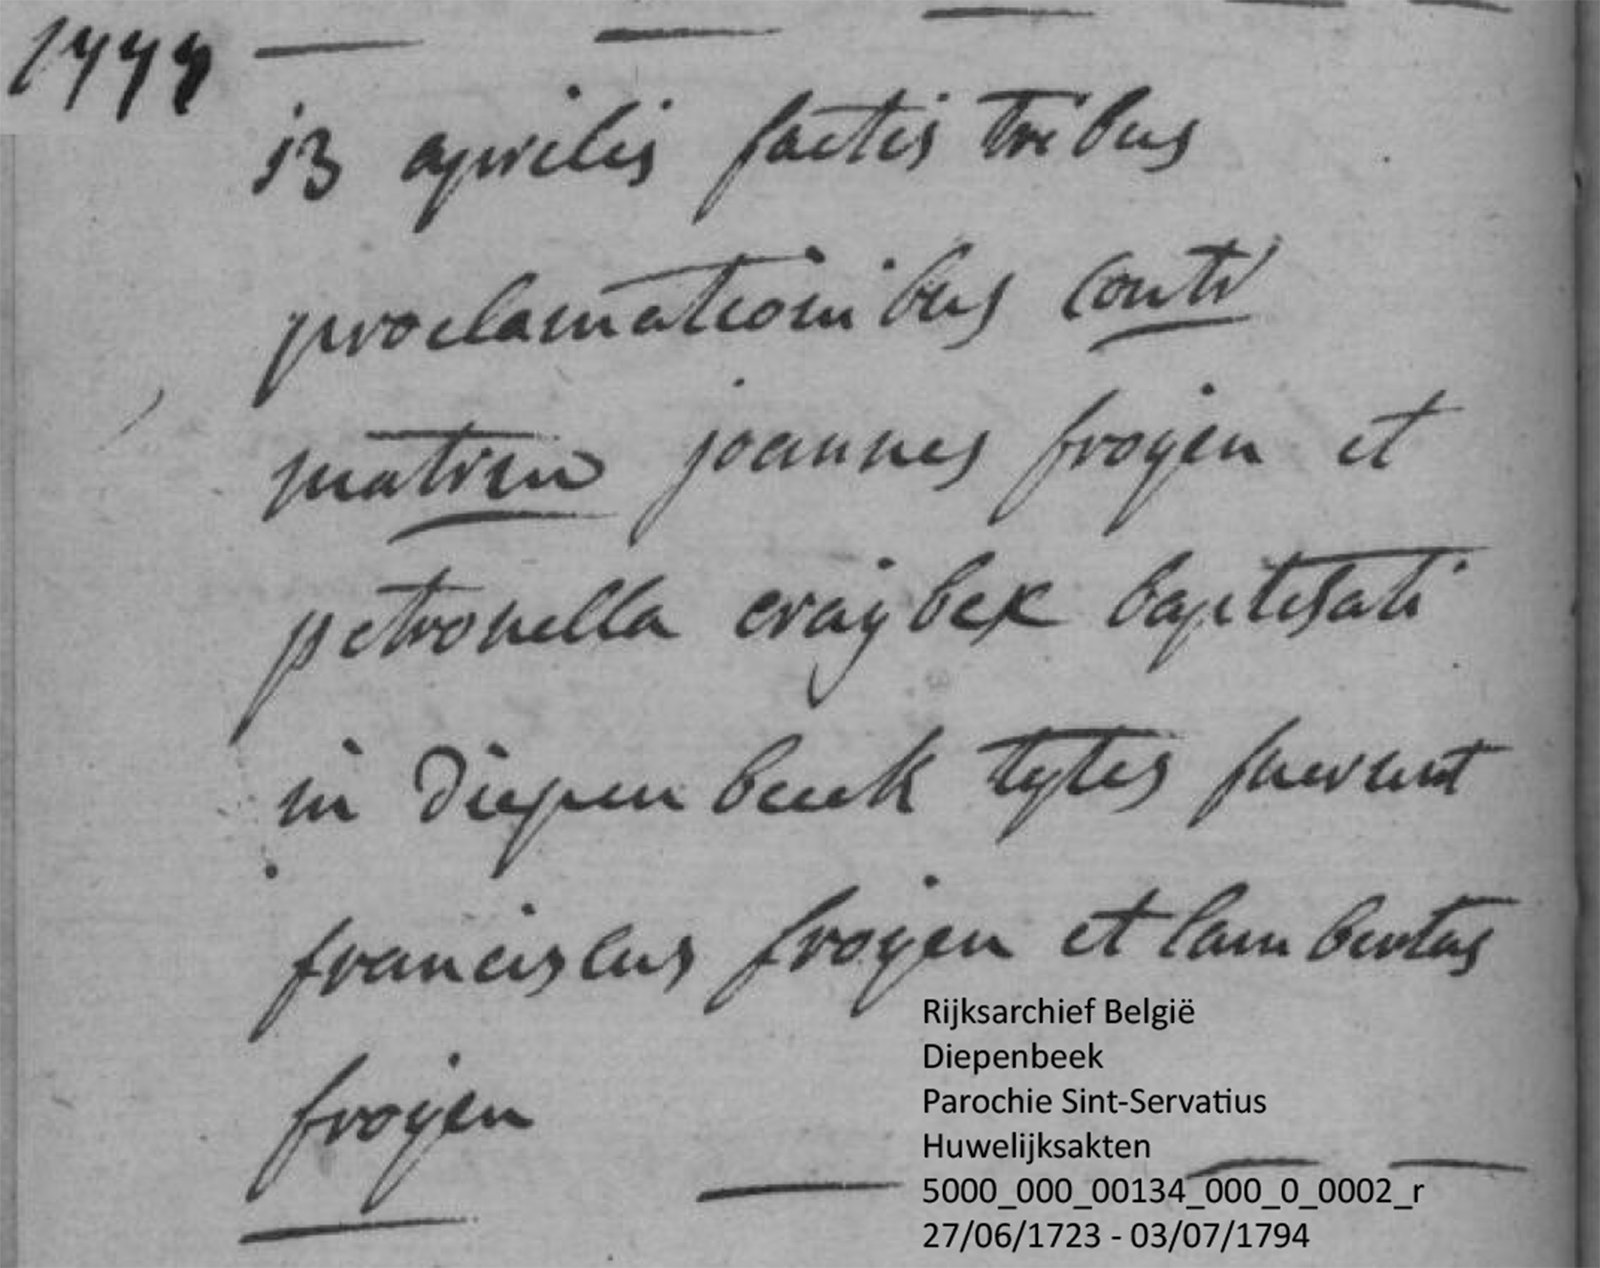 13 aprilis factis tribus
proclamationibus contr
matrim joannes froyen et
petronella craybex baptisati
in Diepenbeek testes fuerunt
franciscus froyen et lambertus
froyen
Rijksarchief België
Diepenbeek
Parochie Sint-Servatius
Huwelijksakten
5000_000_00134_000_0_0002_r
27/06/1723 - 03/07/1794